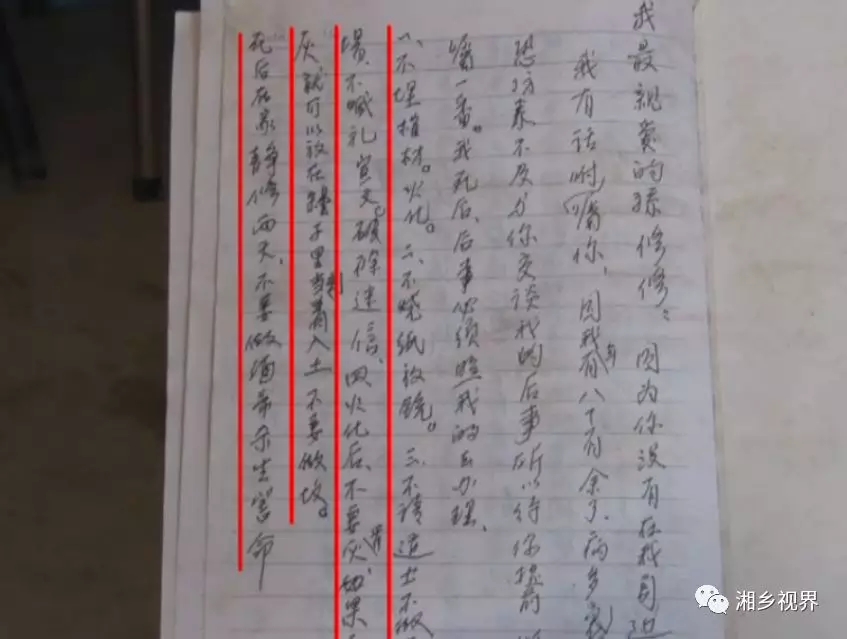 我最親爱的孫修修：因为你没有在我司边
我有话咐嘱你，因我有八十有余了．病多
恐坊来不及与你交谈我的后事所以待你提前
嘱一番。我死后、后事必须照我的去办理、
一、不埋棺材。火化。二、不烧纸放銃。三、不请道士不做
場、不喊礼宣文。破除迷信、四火化后、不要灰，如果
灰就可以放在罎子里 入土不要做坟。
死后在家静修两天，不要做酒席杀生害命
湘乡视界